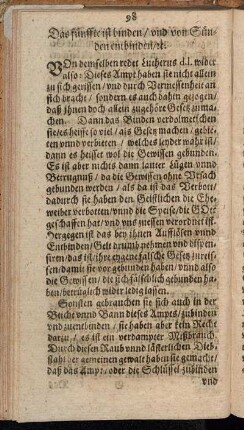 98
Das fünffte ist binden / vnd von Sün-
den entbinden / ꝛc.
VOn demselben redet Lutherus d.l. wider
also: Dieses Ampt haben sie nicht allein
zu sich gerissen / vnd durch Vermessenheit an
sich bracht / sondern es auch dahin gezogen /
daß jhnen doch allein zugehöre Gesetz zuma-
chen. Dann das Binden verdolmetschen
sie / es heisse so viel / als Gesetz machen / gebie-
ten vnnd verbieten / welches leyder wahr ist /
dann es heisset wol die Gewissen gebunden.
Es ist aber nichts dann lauter Lügen vnnd
Betrugnuß / da die Gewissen ohne Vrsach
gebunden werden / als da ist das Verbott /
dadurch sie haben den Geistlichen die Ehe-
weiber verbotten / vnnd die Speise / die GOtt
geschaffen hat / vnd vns niessen verordnet ist.
Hergegen ist das bey jhnen Aufflösen vnnd
Entbinden / Gelt drumb nehmen vnd dispen-
siren / das ist / jhre eygene falsche Gesetz zureis-
sen / damit sie vor gebunden haben / vnnd also
die Gewissen / die sich fälschlich gebunden ha-
ben / betrüglich wider ledig lassen.
Sonsten gebrauchen sie sich auch in der
Beicht vnnd Bann dieses Ampts / zubinden
vnd zuentbinden / sie haben aber kein Recht
darzu / es ist ein verdampter Mißbrauch.
Durch diesen Raub vnnd lästerlichen Dieb-
stahl der gemeinen gewalt haben sie gemacht /
daß das Ampt / oder die Schlüssel zubinden
vnd